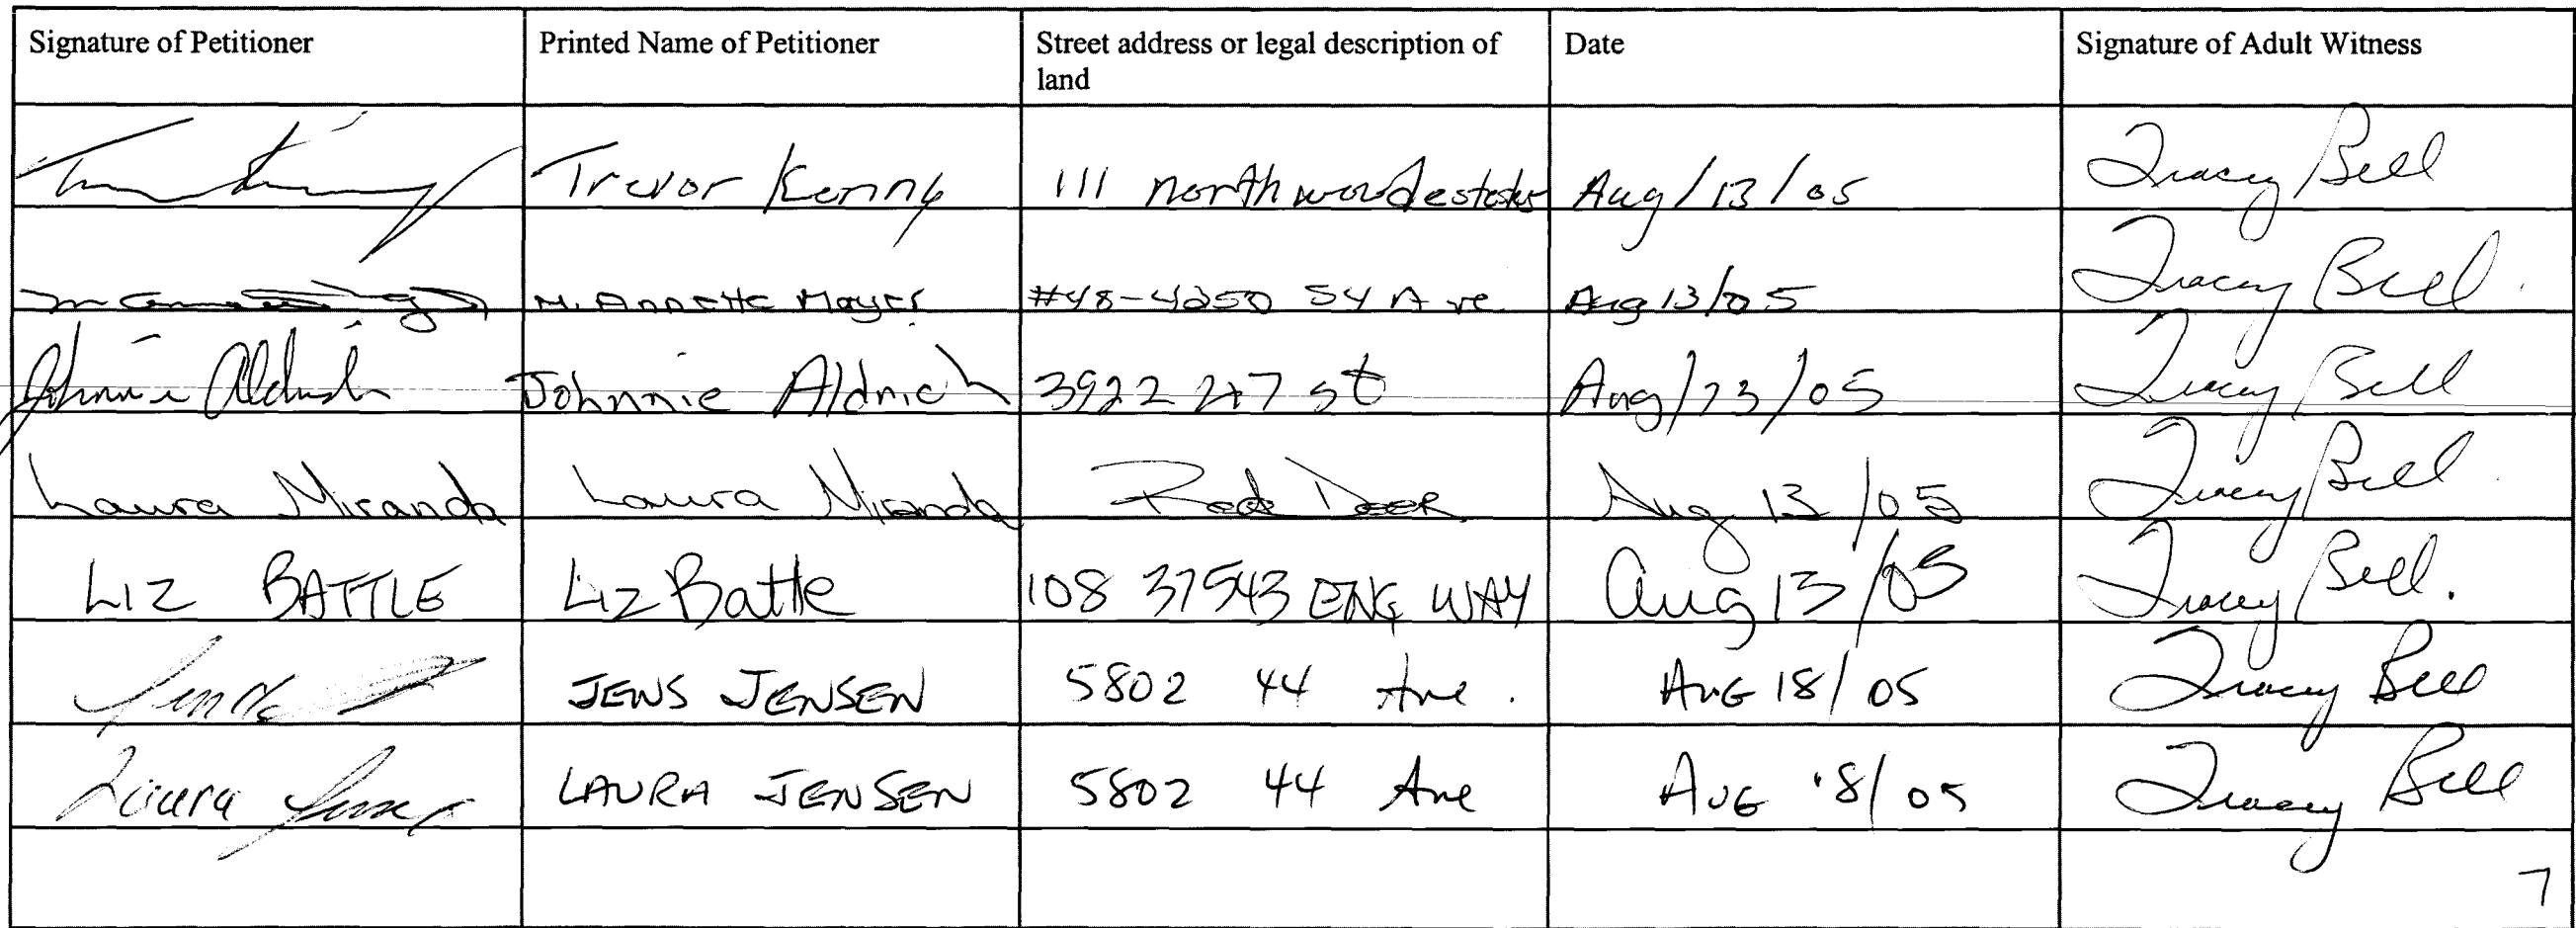 Signature of Petitioner Printed Name of Petitioner Street address or legal description of Date Signature of Adult Witness
land
Trevor Kenny 111 northwoodestates Aug/13/05 Tracey Bell
M. Annette Mayer #48-4250 54 Ave Aug 13/05 Tracey Bell.
Johnnie Aldrich Johnnie Aldrich 3922 47 st Aug/13/05 Tracey Bell
Laura Miranda Laura Miranda Red Deer Aug 13/05 Tracey Bell.
LIZ BATTLE Liz Battle 108 37543 ENG WAY Aug 13/05 Tracey Bell.
JENS JENSEN 5802 44 Ave. AUG 18/05 Tracey Bell
Laura Jensen LAURA JENSEN 5802 44 Ave AUG 18/05 Tracey Bell
7